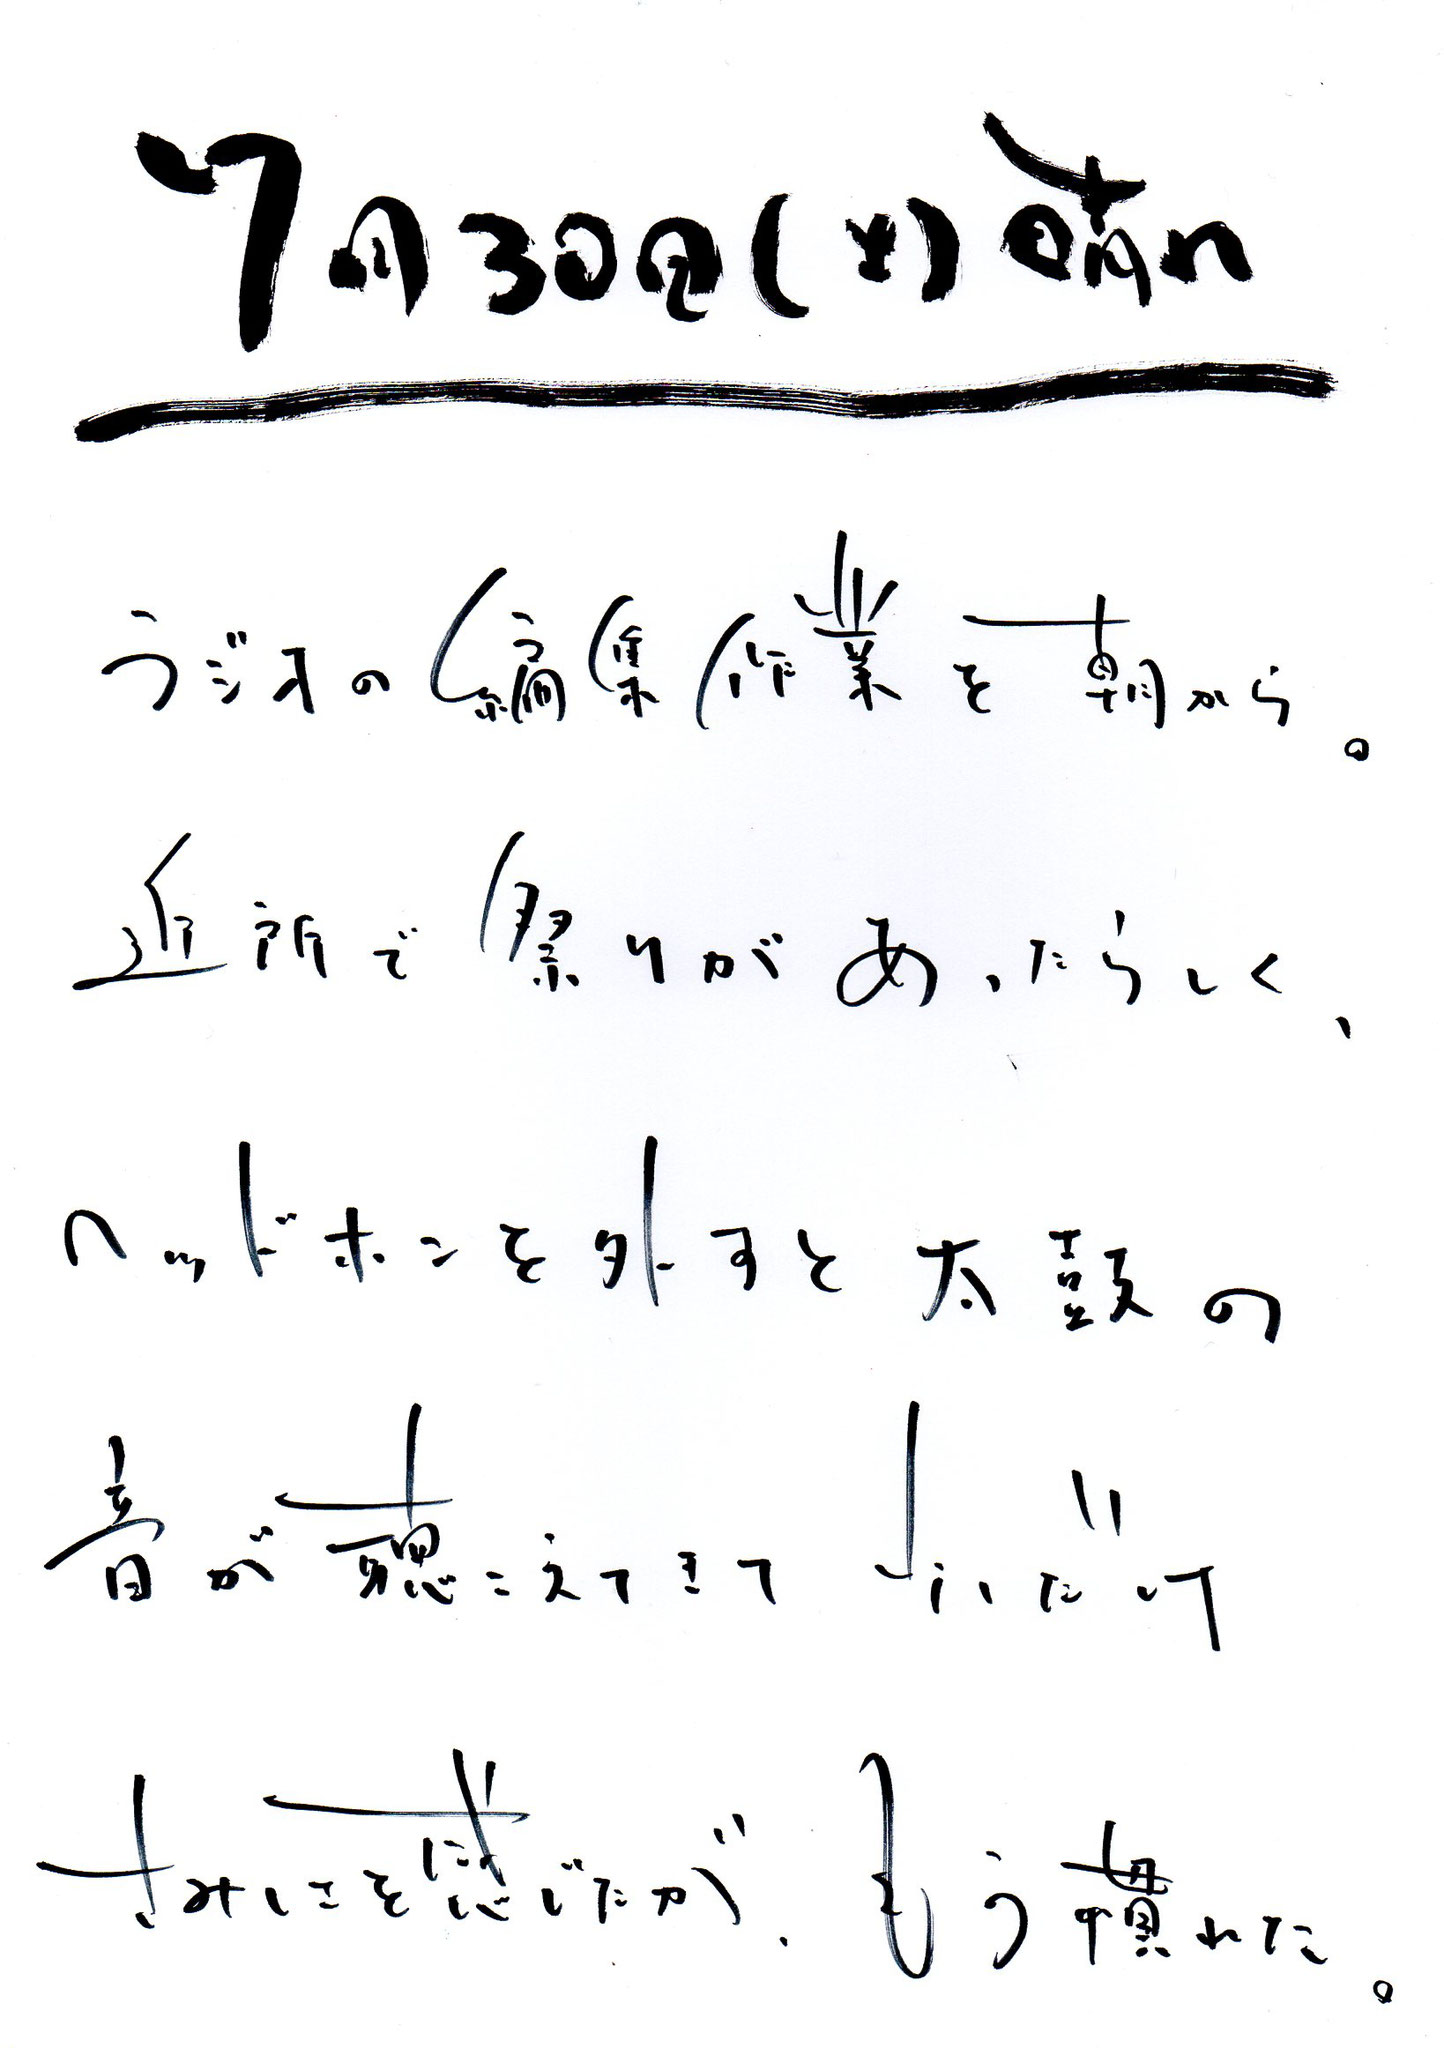 7月30日(土)晴れ
ラジオの編集作業を朝から。
近所で祭りがあったらしく、
ヘッドホンを外すと太鼓の
音が聴こえてきて 少しだけ
さみしさを感じたが、もう慣れた。